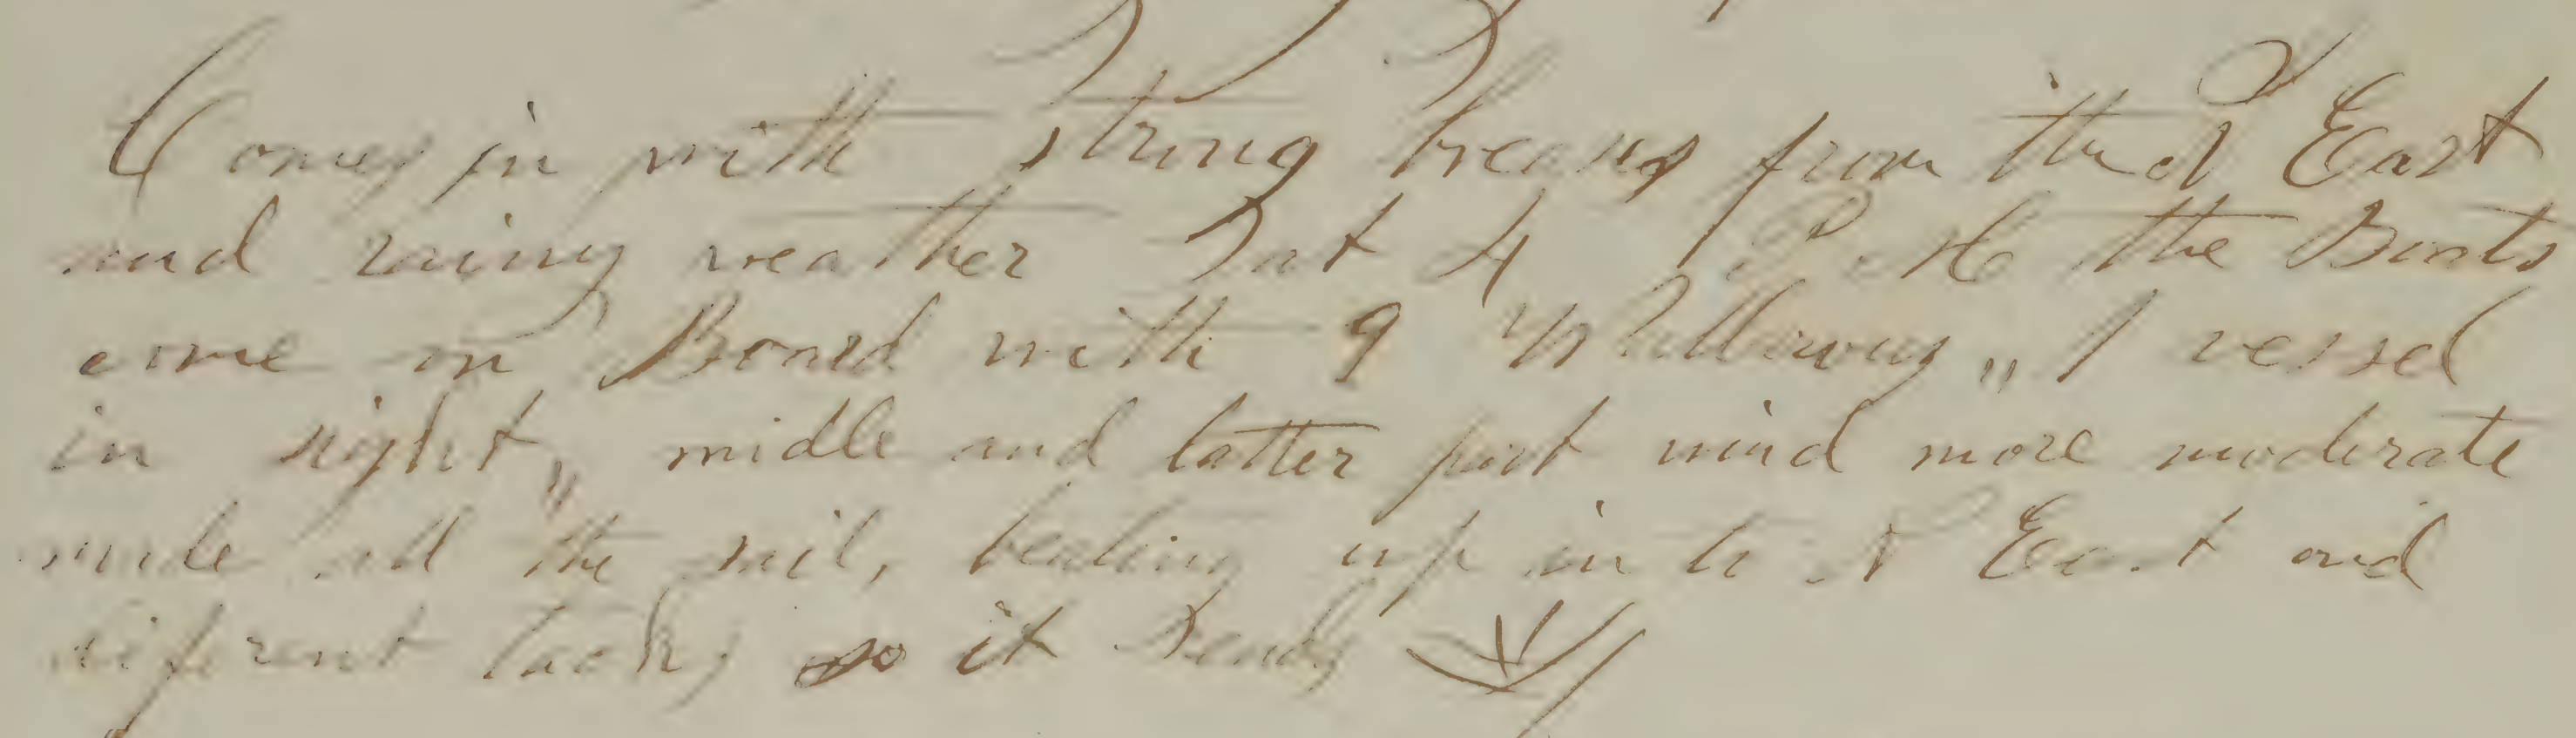 Comes in with strong breases from the N East
and rainy weather at 4 P M the Boats
came on Board with 9 Wallruss " 1 vessel
in sight " midle and latter part wind more moderate
made all the sail, beating up in to N East and
diferent tacks so it Ends